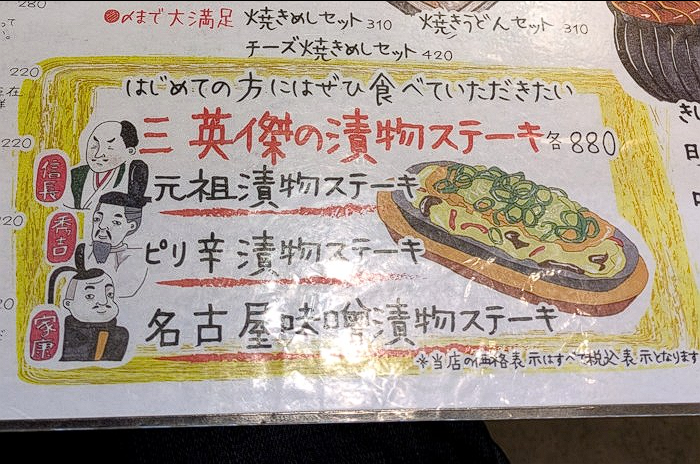 280
●〆まで大満足 焼きめしセット 310 焼きうどんセット 310
チーズ焼きめしセット 420
220
はじめての方にはぜひ食べていただきたい
三英傑の漬物ステーキ 各880
220
信長
元祖漬物ステーキ
秀吉
ピリ辛漬物ステーキ
家康
名古屋味噌漬物ステーキ
※当店の価格表示はすべて税込表示となります